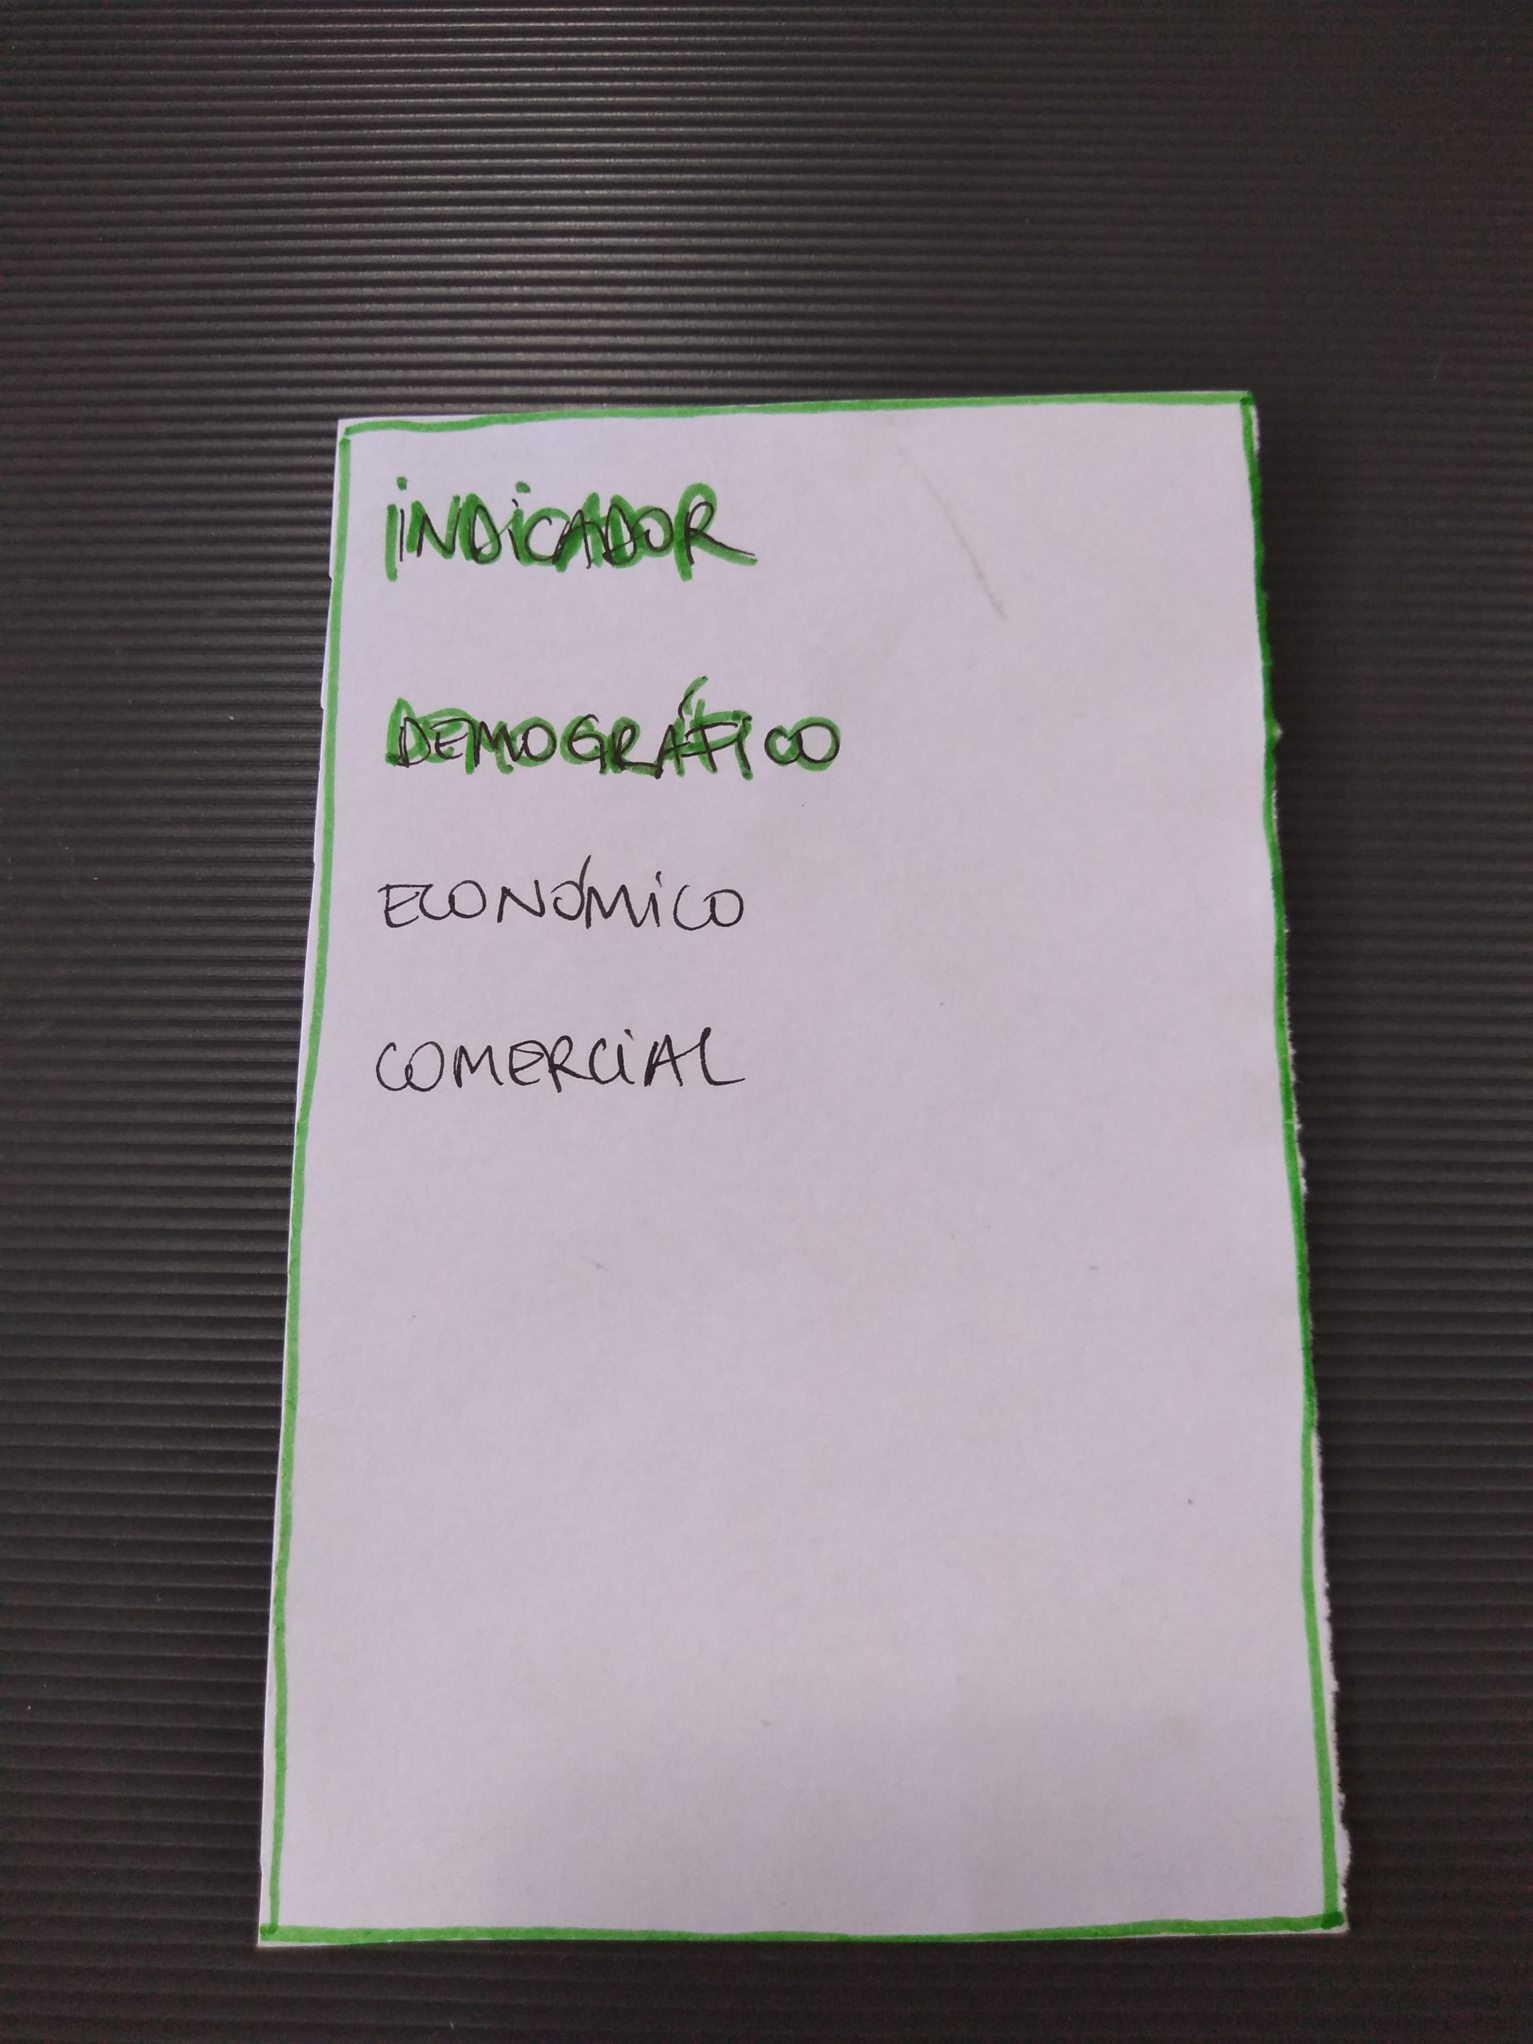 INDICADOR
DEMOGRÁFICO
ECONÓMICO
COMERCIAL